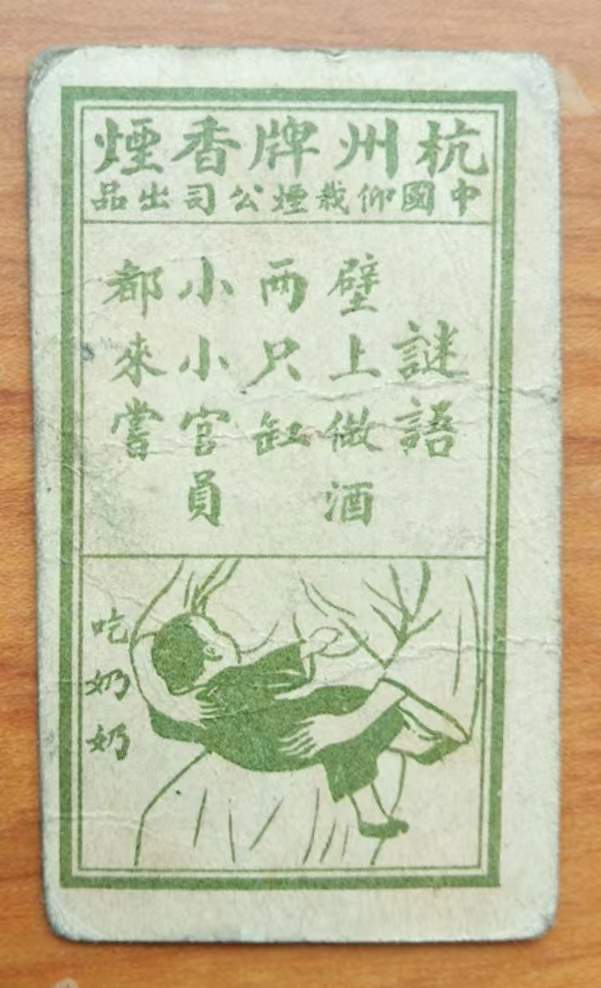 杭州牌香煙
中國仰栽煙公司出品
謎語
壁上做酒
兩只缸
小小官員
都來嘗
吃奶奶